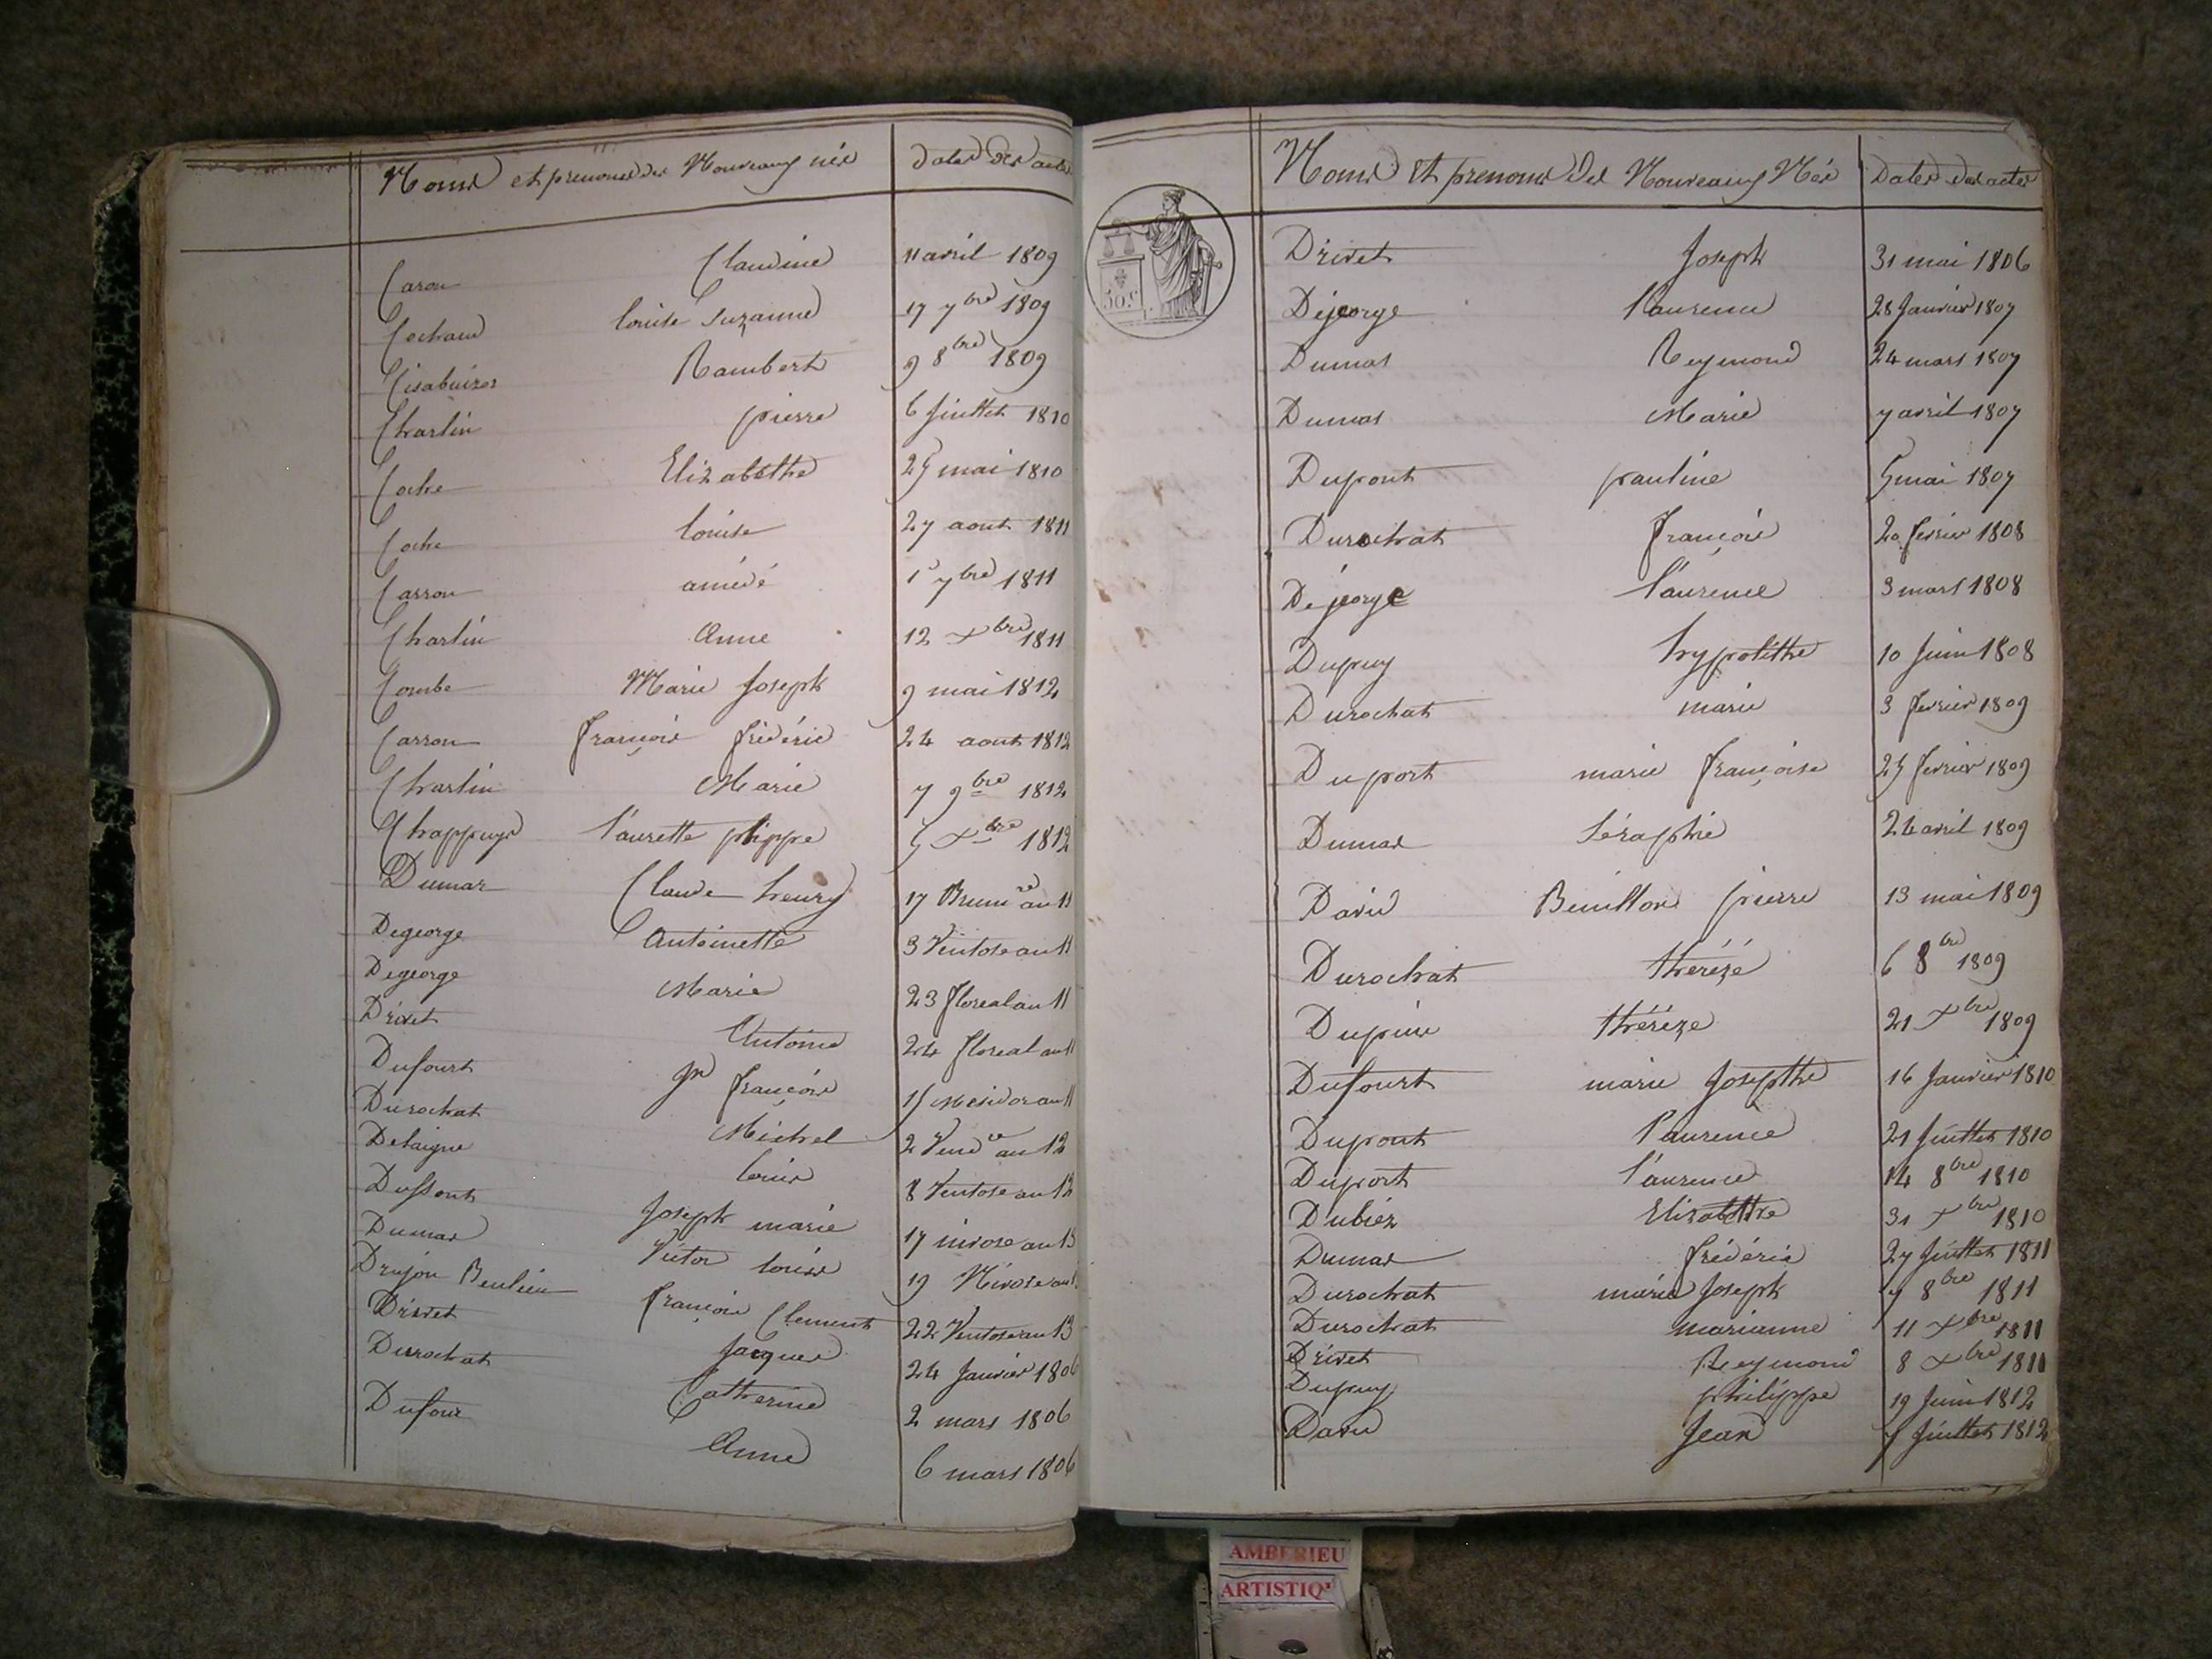 Noms et prenoms des Nouveaux nés Dates des actes
Caron Claudine 11 avril 1809
Cochaud louise Suzanne 17 7bre 1809
Rambert 9 8bre 1809
Charlin pierre 6 Juillet 1810
Coche Elizabethe 25 mai 1810
Coche louise 27 aout 1811
Carron amédé 1r 7bre 1811
Charlin Anne 12 Xbre 1811
Combe Marie Joseph 9 mai 1812
Carron françois frédéric 24 aout 1812
Charlin Marie 7 9bre 1812
Chappuys laurette phippe 5 Xbre 1812
Dumas Claude henry 17 Brumre an 11
Degeorge Antoinette 3 Ventose an 11
Degeorge Marie 23 floreal an 11
Drivet Antoine 24 floreal an 11
Dufourt Jn françois 15 Messidor an 11
Durochat Michel 2 Vendre an 12
Delaigue louis 8 Ventose an 12
Duffont Joseph marie 17 nivose an 13
Dumas Victor louis 19 Nivose an
Drujon Beulieu françois Clement 22 Ventose an 13
Drivet Jacques 24 Janvier 1806
Durochat Catherine 2 mars 1806
Dufour Anne 6 mars 1806
Noms et prenoms des Nouveaux Nés Dates des actes
50.c
Drivet Joseph 31 mai 1806
Dejeorge laurence 28 Janvier 1807
Dumas Reymond 24 mars 1807
Dumas Marie 7 avril 1807
Dupont pauline 5 mai 1807
Durochat françois 20 fevrier 1808
Déjeorge laurence 3 mars 1808
Dupuy hypolithe 10 Juin 1808
Durochat marie 3 fevrier 1809
Duport marie françoise 25 fevrier 1809
Dumas Séraphie 24 avril 1809
David Beuillon pierre 13 mai 1809
Durochat thérèze 6 8bre 1809
Dupuis thérèze 21 Xbre 1809
Dufourt marie Josepthe 16 Janvier 1810
Dupont laurence 21 Juillet 1810
Duport laurence 14 8bre 1810
Dubiez Elizabethe 31 Xbre 1810
Dumas frédéric 27 Juillet 1811
Durochat marie Joseph 7 8bre 1811
Durochat marianne 11 Xbre 1811
Drivet Reymond 8 Xbre 1811
Dupuy philippe 19 Juin 1812
David Jean 7 Juillet 1812
AMBERIEU
ARTISTIQ